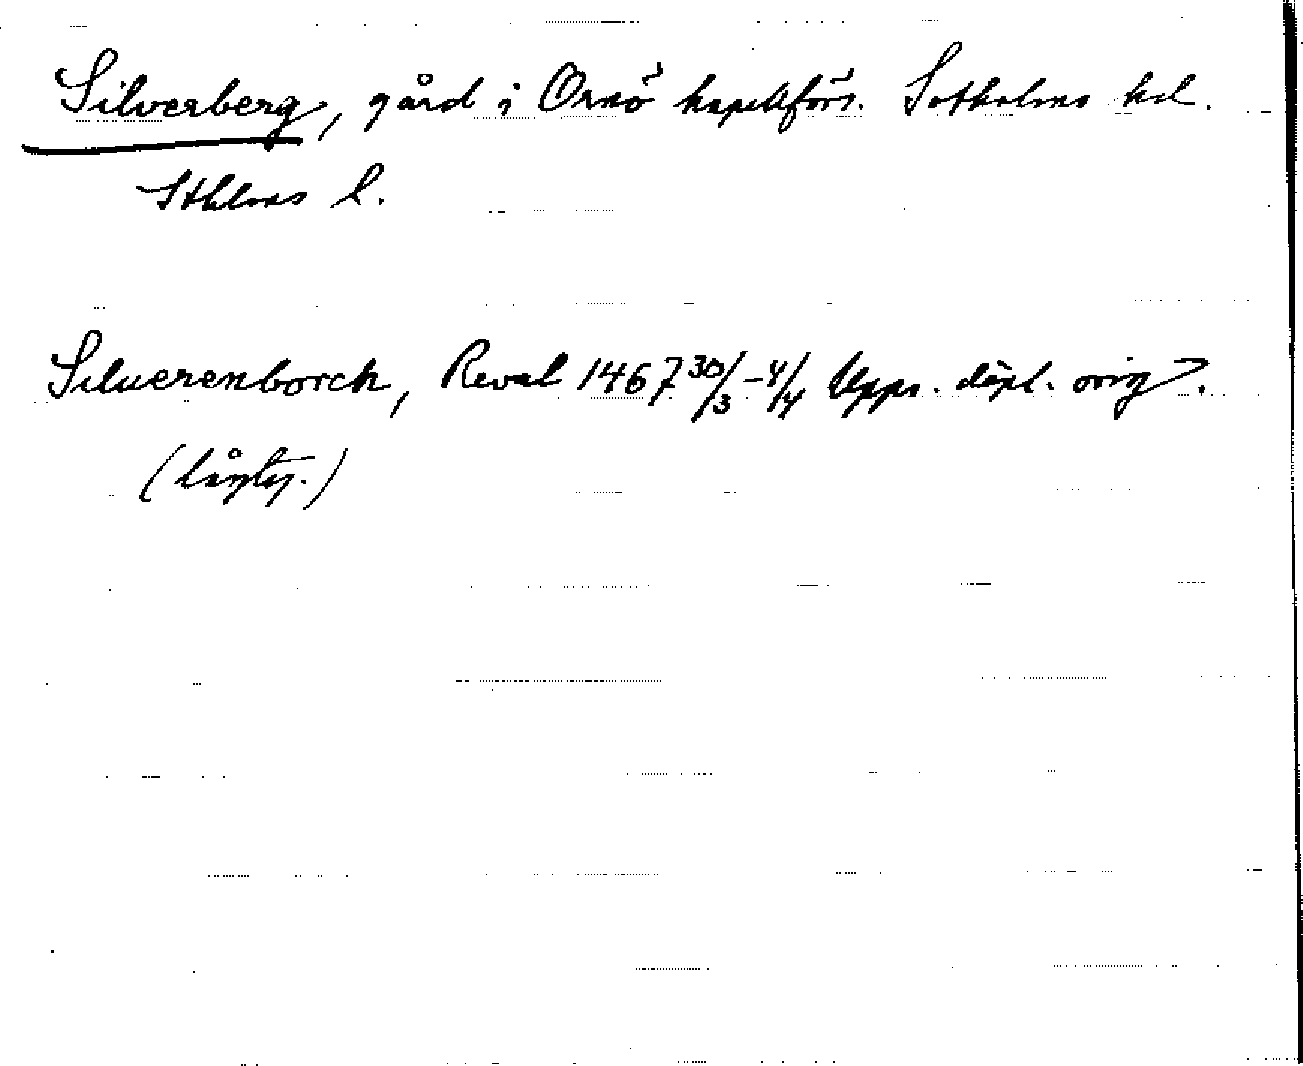 Silverberg, gård i Ornö kapellförs. Sotholms hd.
Sthlms l.
Siluerenborch, Reval 1467 30/3–4/4 Upps. dipl. orig.
(lågty.)